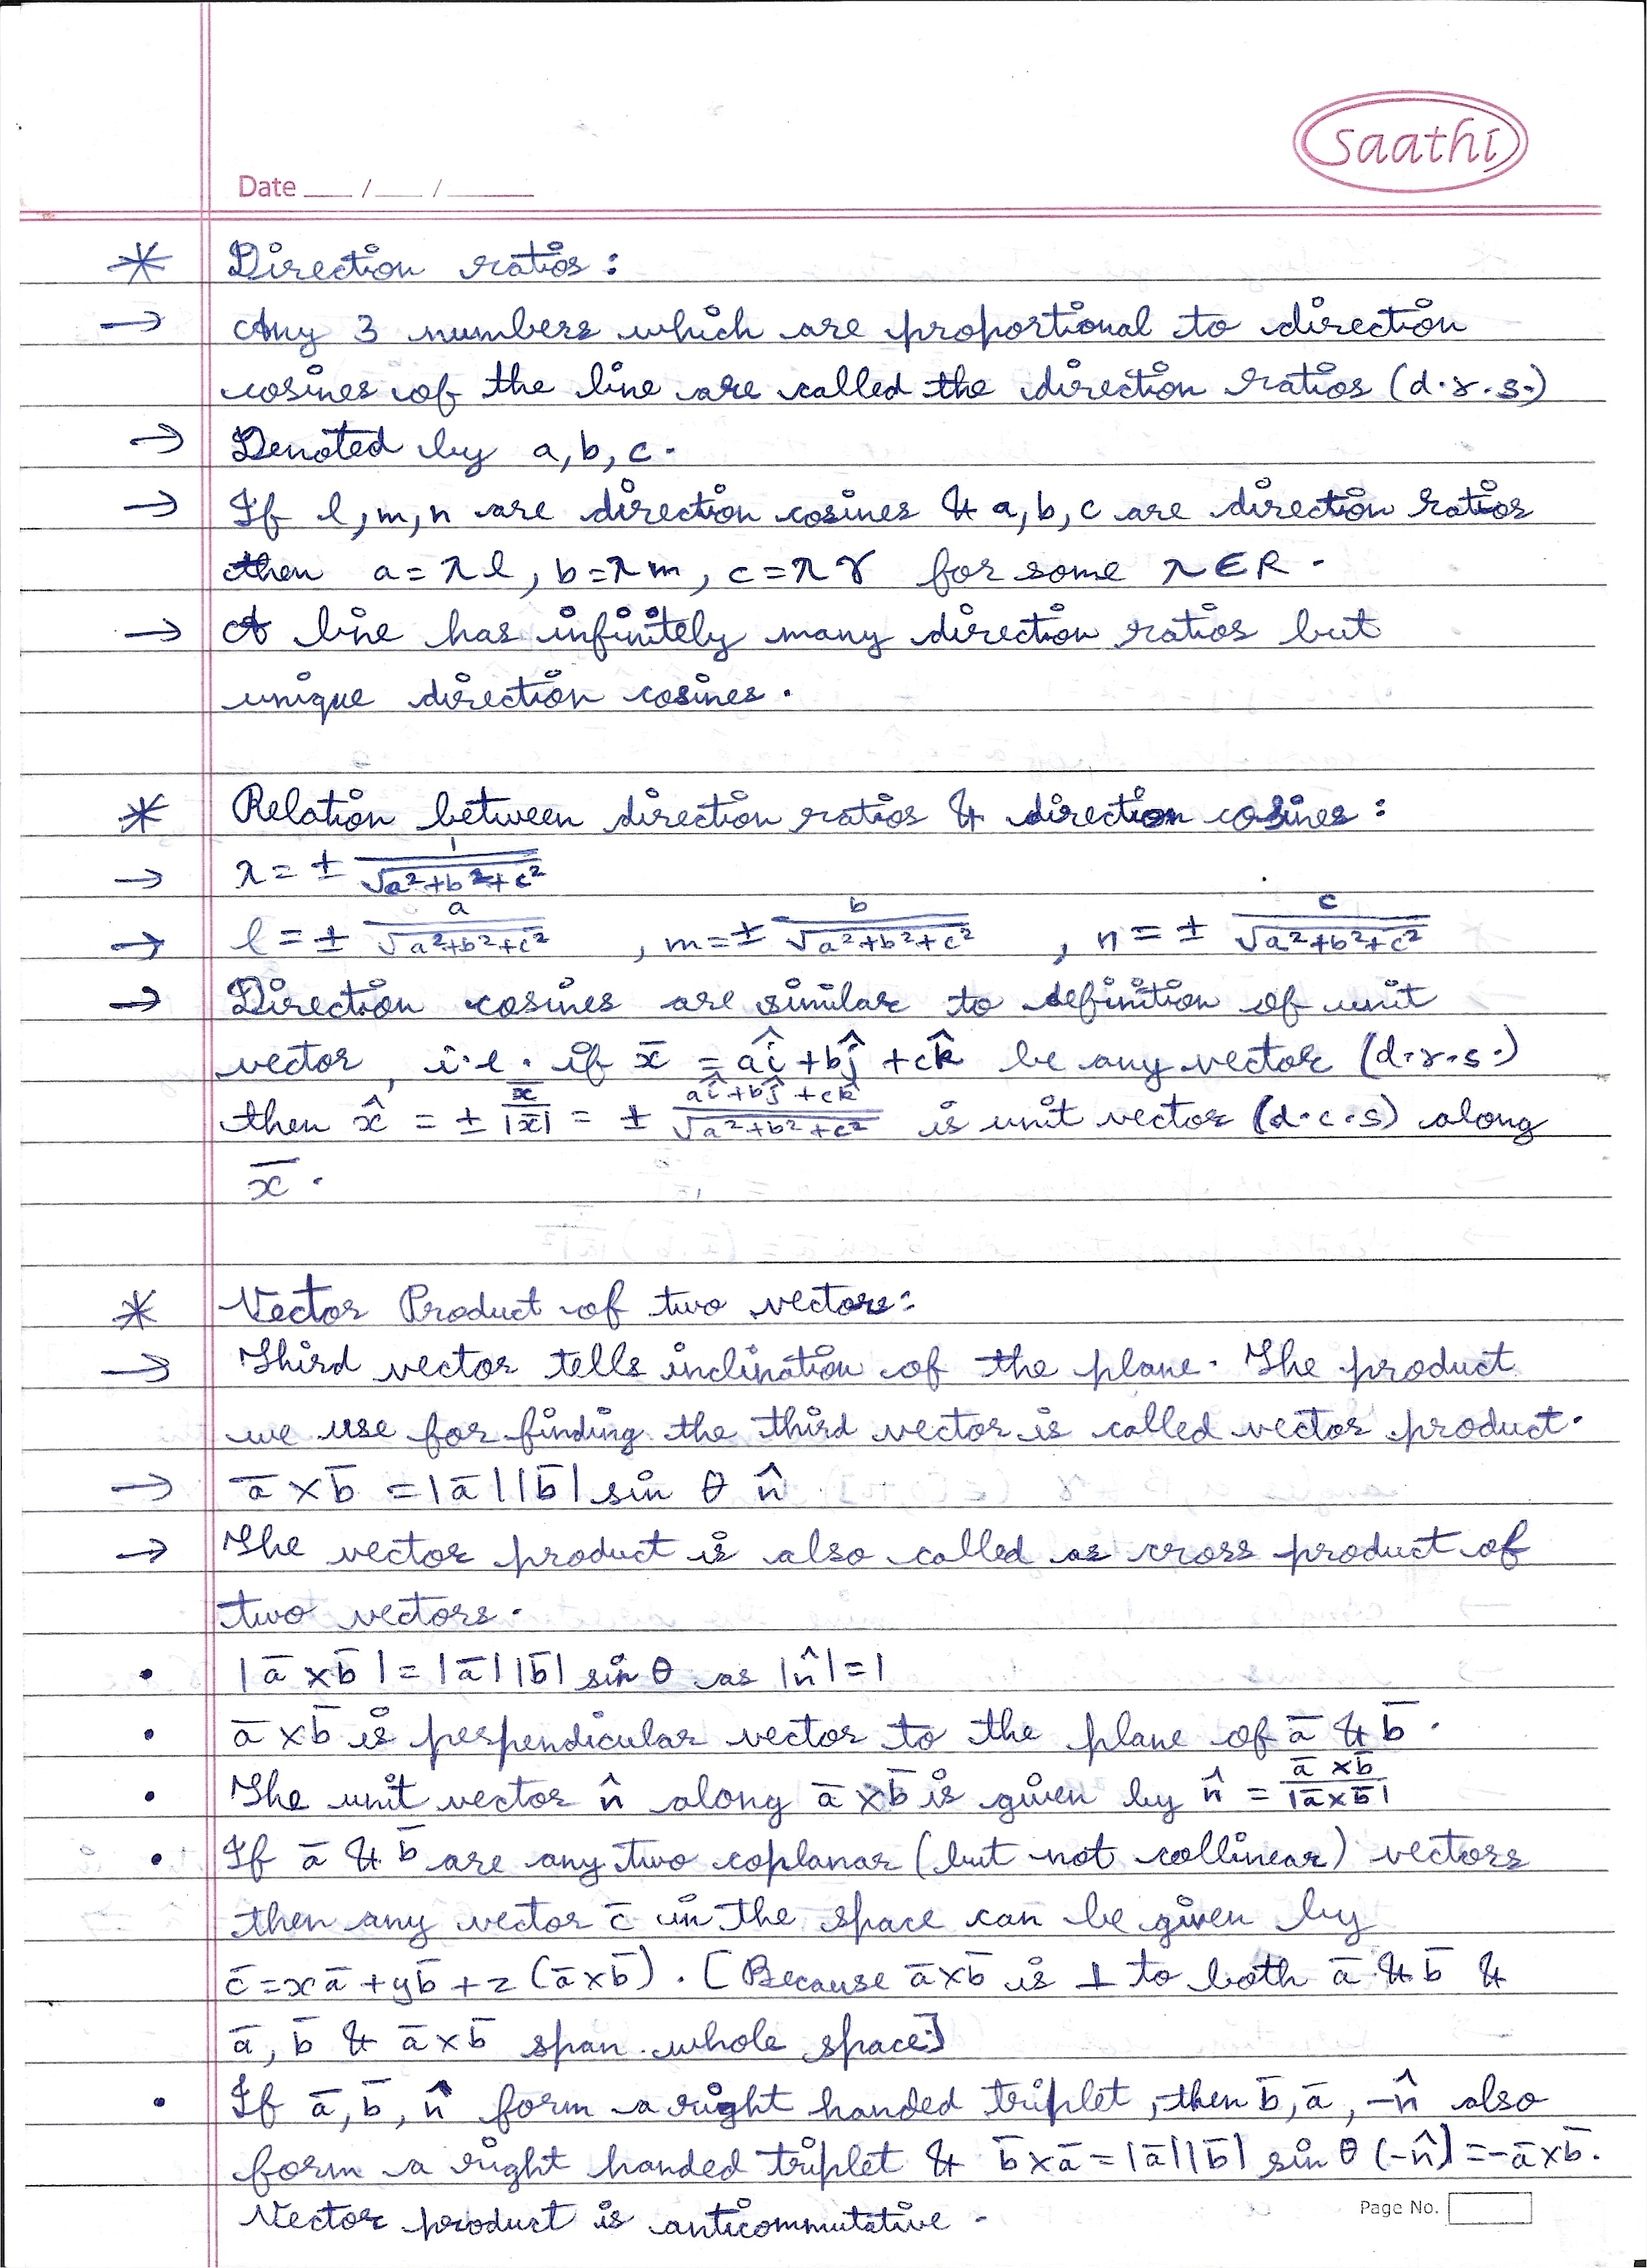 saathi
Date ___/___/_____
* Direction ratios:
→ Any 3 numbers which are proportional to direction
cosines of the line are called the direction ratios (d.r.s.)
→ Denoted by a, b, c.
→ If l, m, n are direction cosines & a, b, c are direction ratios
then a = λl, b = λm, c = λγ for some λ ∈ R.
→ A line has infinitely many direction ratios but
unique direction cosines.
* Relation between direction ratios & direction cosines:
→ λ = ± 1/√(a²+b²+c²)
→ l = ± a/√(a²+b²+c²) , m = ± b/√(a²+b²+c²) , n = ± c/√(a²+b²+c²)
→ Direction cosines are similar to definition of unit
vector, i.e. if x̄ = aî + bĵ + ck̂ be any vector (d.r.s.)
then x̂ = ± x̄/|x̄| = ± (aî + bĵ + ck̂)/√(a²+b²+c²) is unit vector (d.c.s) along
x̄.
* Vector Product of two vectors:
→ Third vector tells inclination of the plane. The product
we use for finding the third vector is called vector product.
→ ā × b̄ = |ā||b̄| sin θ n̂
→ The vector product is also called as cross product of
two vectors.
• |ā × b̄| = |ā||b̄| sin θ as |n̂| = 1
• ā × b̄ is perpendicular vector to the plane of ā & b̄.
• The unit vector n̂ along ā × b̄ is given by n̂ = (ā × b̄)/|ā × b̄|
• If ā & b̄ are any two coplanar (but not collinear) vectors
then any vector c̄ in the space can be given by
c̄ = xā + yb̄ + z(ā × b̄). [Because ā × b̄ is ⊥ to both ā & b̄ &
ā, b̄ & ā × b̄ span whole space.]
• If ā, b̄, n̂ form a right handed triplet, then b̄, ā, -n̂ also
form a right handed triplet & b̄ × ā = |ā||b̄| sin θ (-n̂) = -ā × b̄.
Vector product is anticommutative.
Page No.